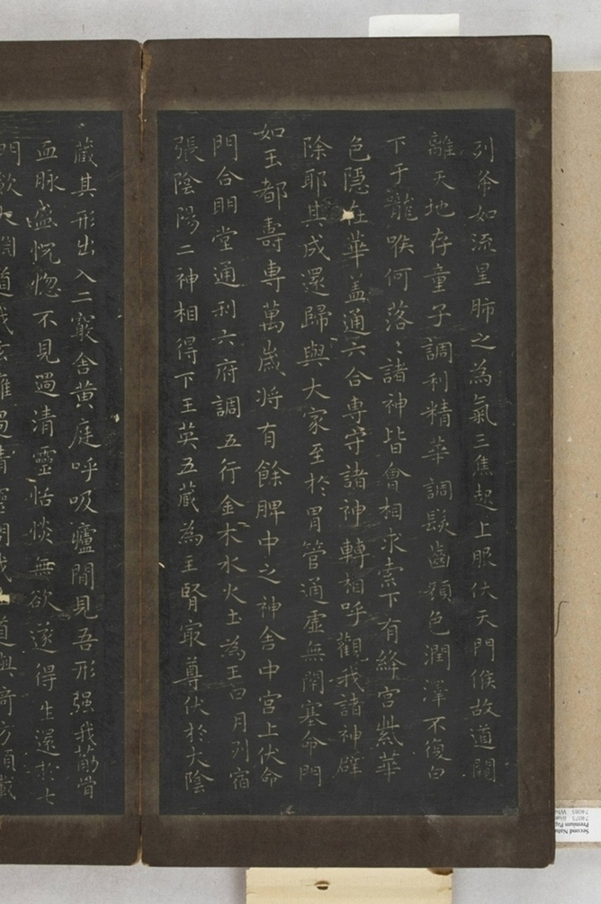 列布如流星肺之為氣三焦起上服伏天門候故道闚
離天地存童子調利精華調髮齒顏色潤澤不復白
下于嚨喉何落〻諸神皆會相求索下有絳宮紫華
色隱在華蓋通六合專守諸神轉相呼觀我諸神辟
除耶其成還歸與大家至於胃管通虛無閉塞命門
如玉都壽專萬歲將有餘脾中之神舍中宮上伏命
門合明堂通利六府調五行金木水火土為王日月列宿
張陰陽二神相得下玉英五藏為主腎寂尊伏於大陰
藏其形出入二竅舍黃庭呼吸廬間見吾形强我筋骨
血脉盛怳惚不見過清靈恬惔無欲遂得生還於七